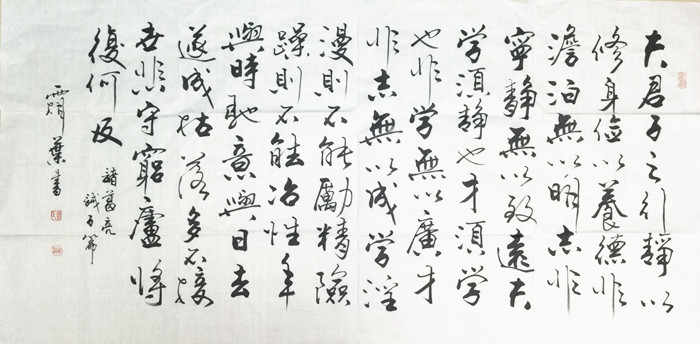 夫君子之行靜以
修身儉以養德非
澹泊無以明志非
寧靜無以致遠夫
学須靜也才須学
也非学無以廣才
非志無以成学淫
漫則不能勵精險
躁則不能冶性年
與時馳意與日去
遂成枯落多不接
世悲守窮廬將
復何及
諸葛亮
誡子篇
葉書